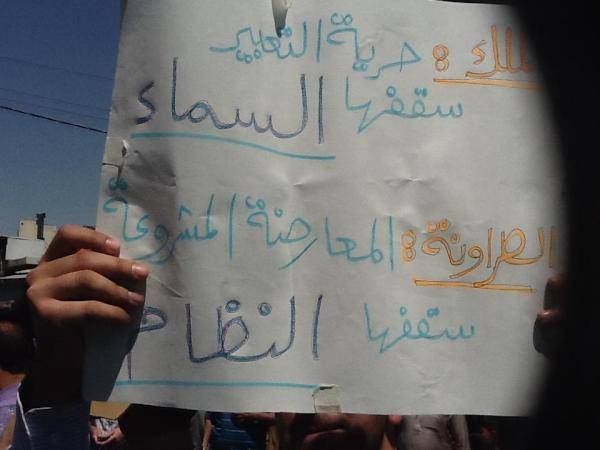 الملك : حرية التعبير
سقفها السماء
الطراونة : المعارضة المشروعة
سقفها النظام